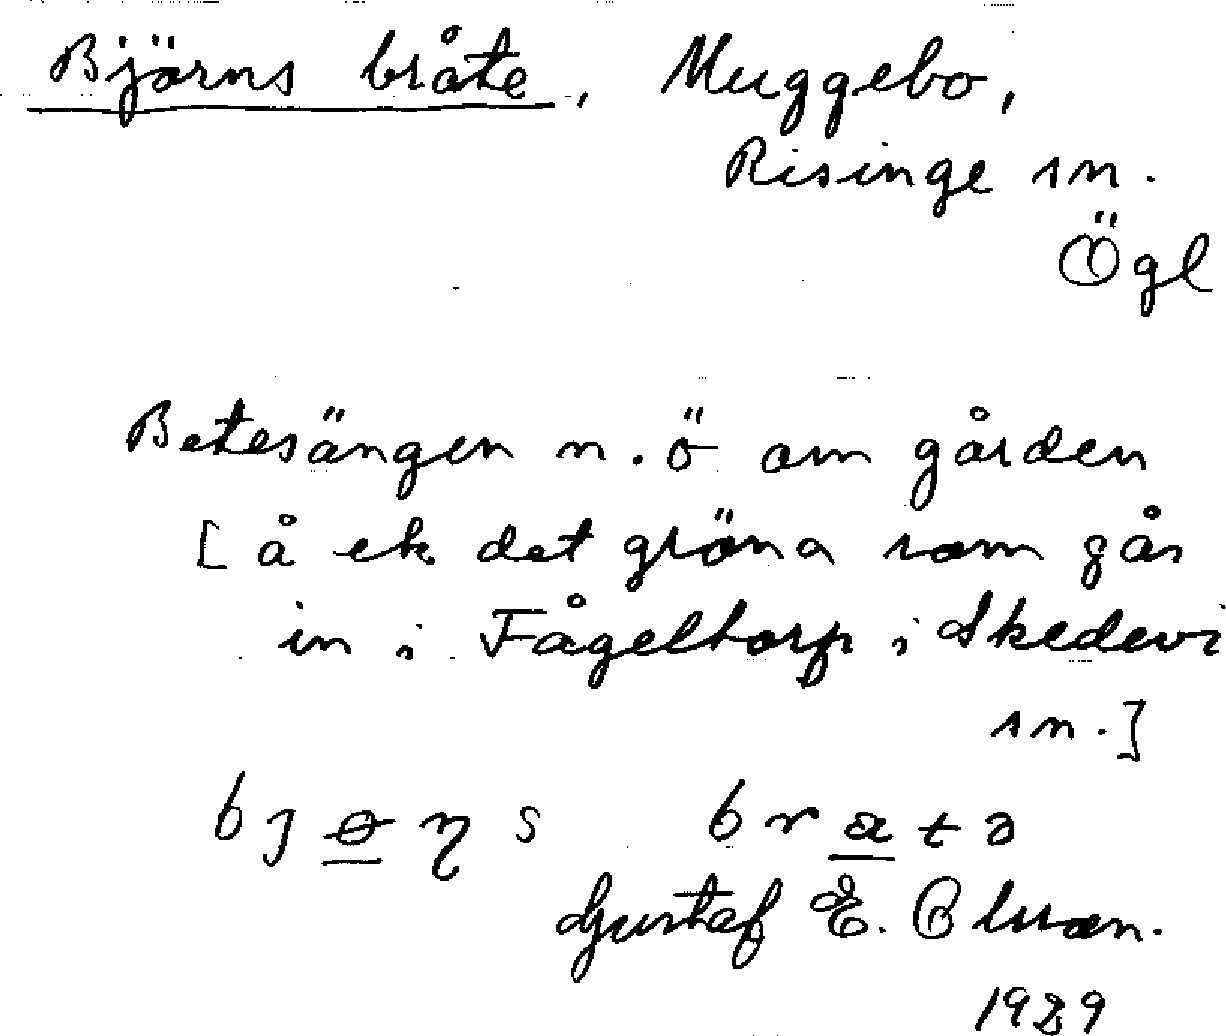 Björns bråte, Muggebo,
Risinge sn.
Ögl
Betesängen n.ö om gården
[å ek det gröna som går
in i Fågeltorp i Skedevi
sn.]
bjɵɳs bratə
Gustaf E. Olsson.
1929